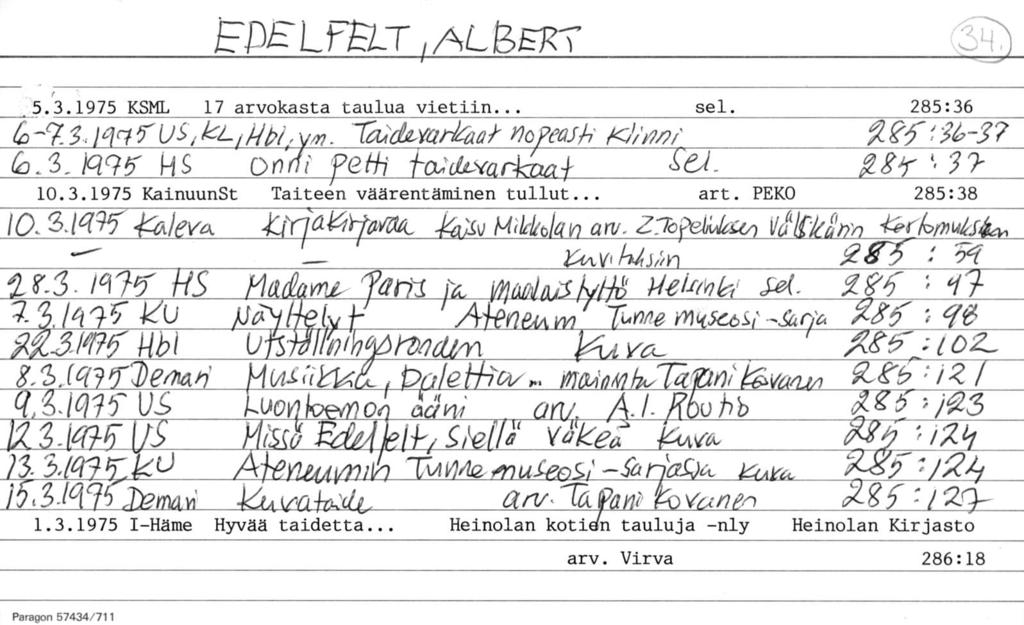 EDELFELT, ALBERT 34.
5.3.1975 KSML 17 arvokasta taulua vietiin... sel. 285:36
6-7.3.1975 US, KL, Hbl, ym. Taidevarkaat nopeasti kiinni 285:36-37
6.3.1975 HS Onni petti taidevarkaat sel. 285:37
10.3.1975 KainuunSt Taiteen väärentäminen tullut... art. PEKO 285:38
10.3.1975 Kaleva Kirjakirjavaa Kaisu Mikkolan arv. Z.Topeliuksen Välskärin kertomuksien
— — kuvituksiin 285:59
28.3.1975 HS Madame Paris ja maalaistyttö Helsinki sel. 285:97
7.3.1975 KU Näyttelyt Ateneum Tunne museosi -sarja 285:98
22.3.1975 Hbl Utställningsronden Kuva 285:102
8.3.1975 Demari Musiikkia, palettia ... maininta Tapani Kovanen 285:121
9.3.1975 US Luontoemon ääni arv. A.I. Routio 285:123
12.3.1975 US Missä Edelfelt, siellä väkeä kuva 285:124
13.3.1975 KU Ateneumin Tunne museosi -sarjassa kuva 285:124
15.3.1975 Demari Kuvataide arv. Tapani Kovanen 285:127
1.3.1975 I-Häme Hyvää taidetta... Heinolan kotien tauluja -nly Heinolan Kirjasto
arv. Virva 286:18
Paragon 57434/711